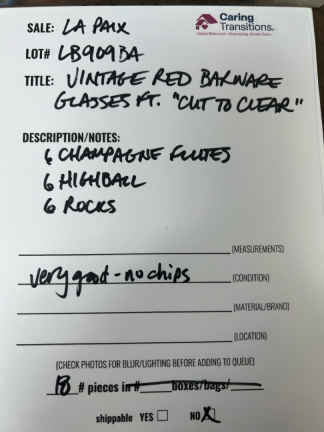 Caring
Transitions.
SALE: LA PAIX
LOT# LB909BA
TITLE: VINTAGE RED BARWARE
GLASSES FT. "CUT TO CLEAR"
DESCRIPTION/NOTES:
6 CHAMPAGNE FLUTES
6 HIGHBALL
6 ROCKS
(MEASUREMENTS)
very good - no chips (CONDITION)
(MATERIAL/BRAND)
(LOCATION)
(CHECK PHOTOS FOR BLUR/LIGHTING BEFORE ADDING TO QUEUE)
18 # pieces in # boxes/bags/
shippable YES ☐ NO ☒